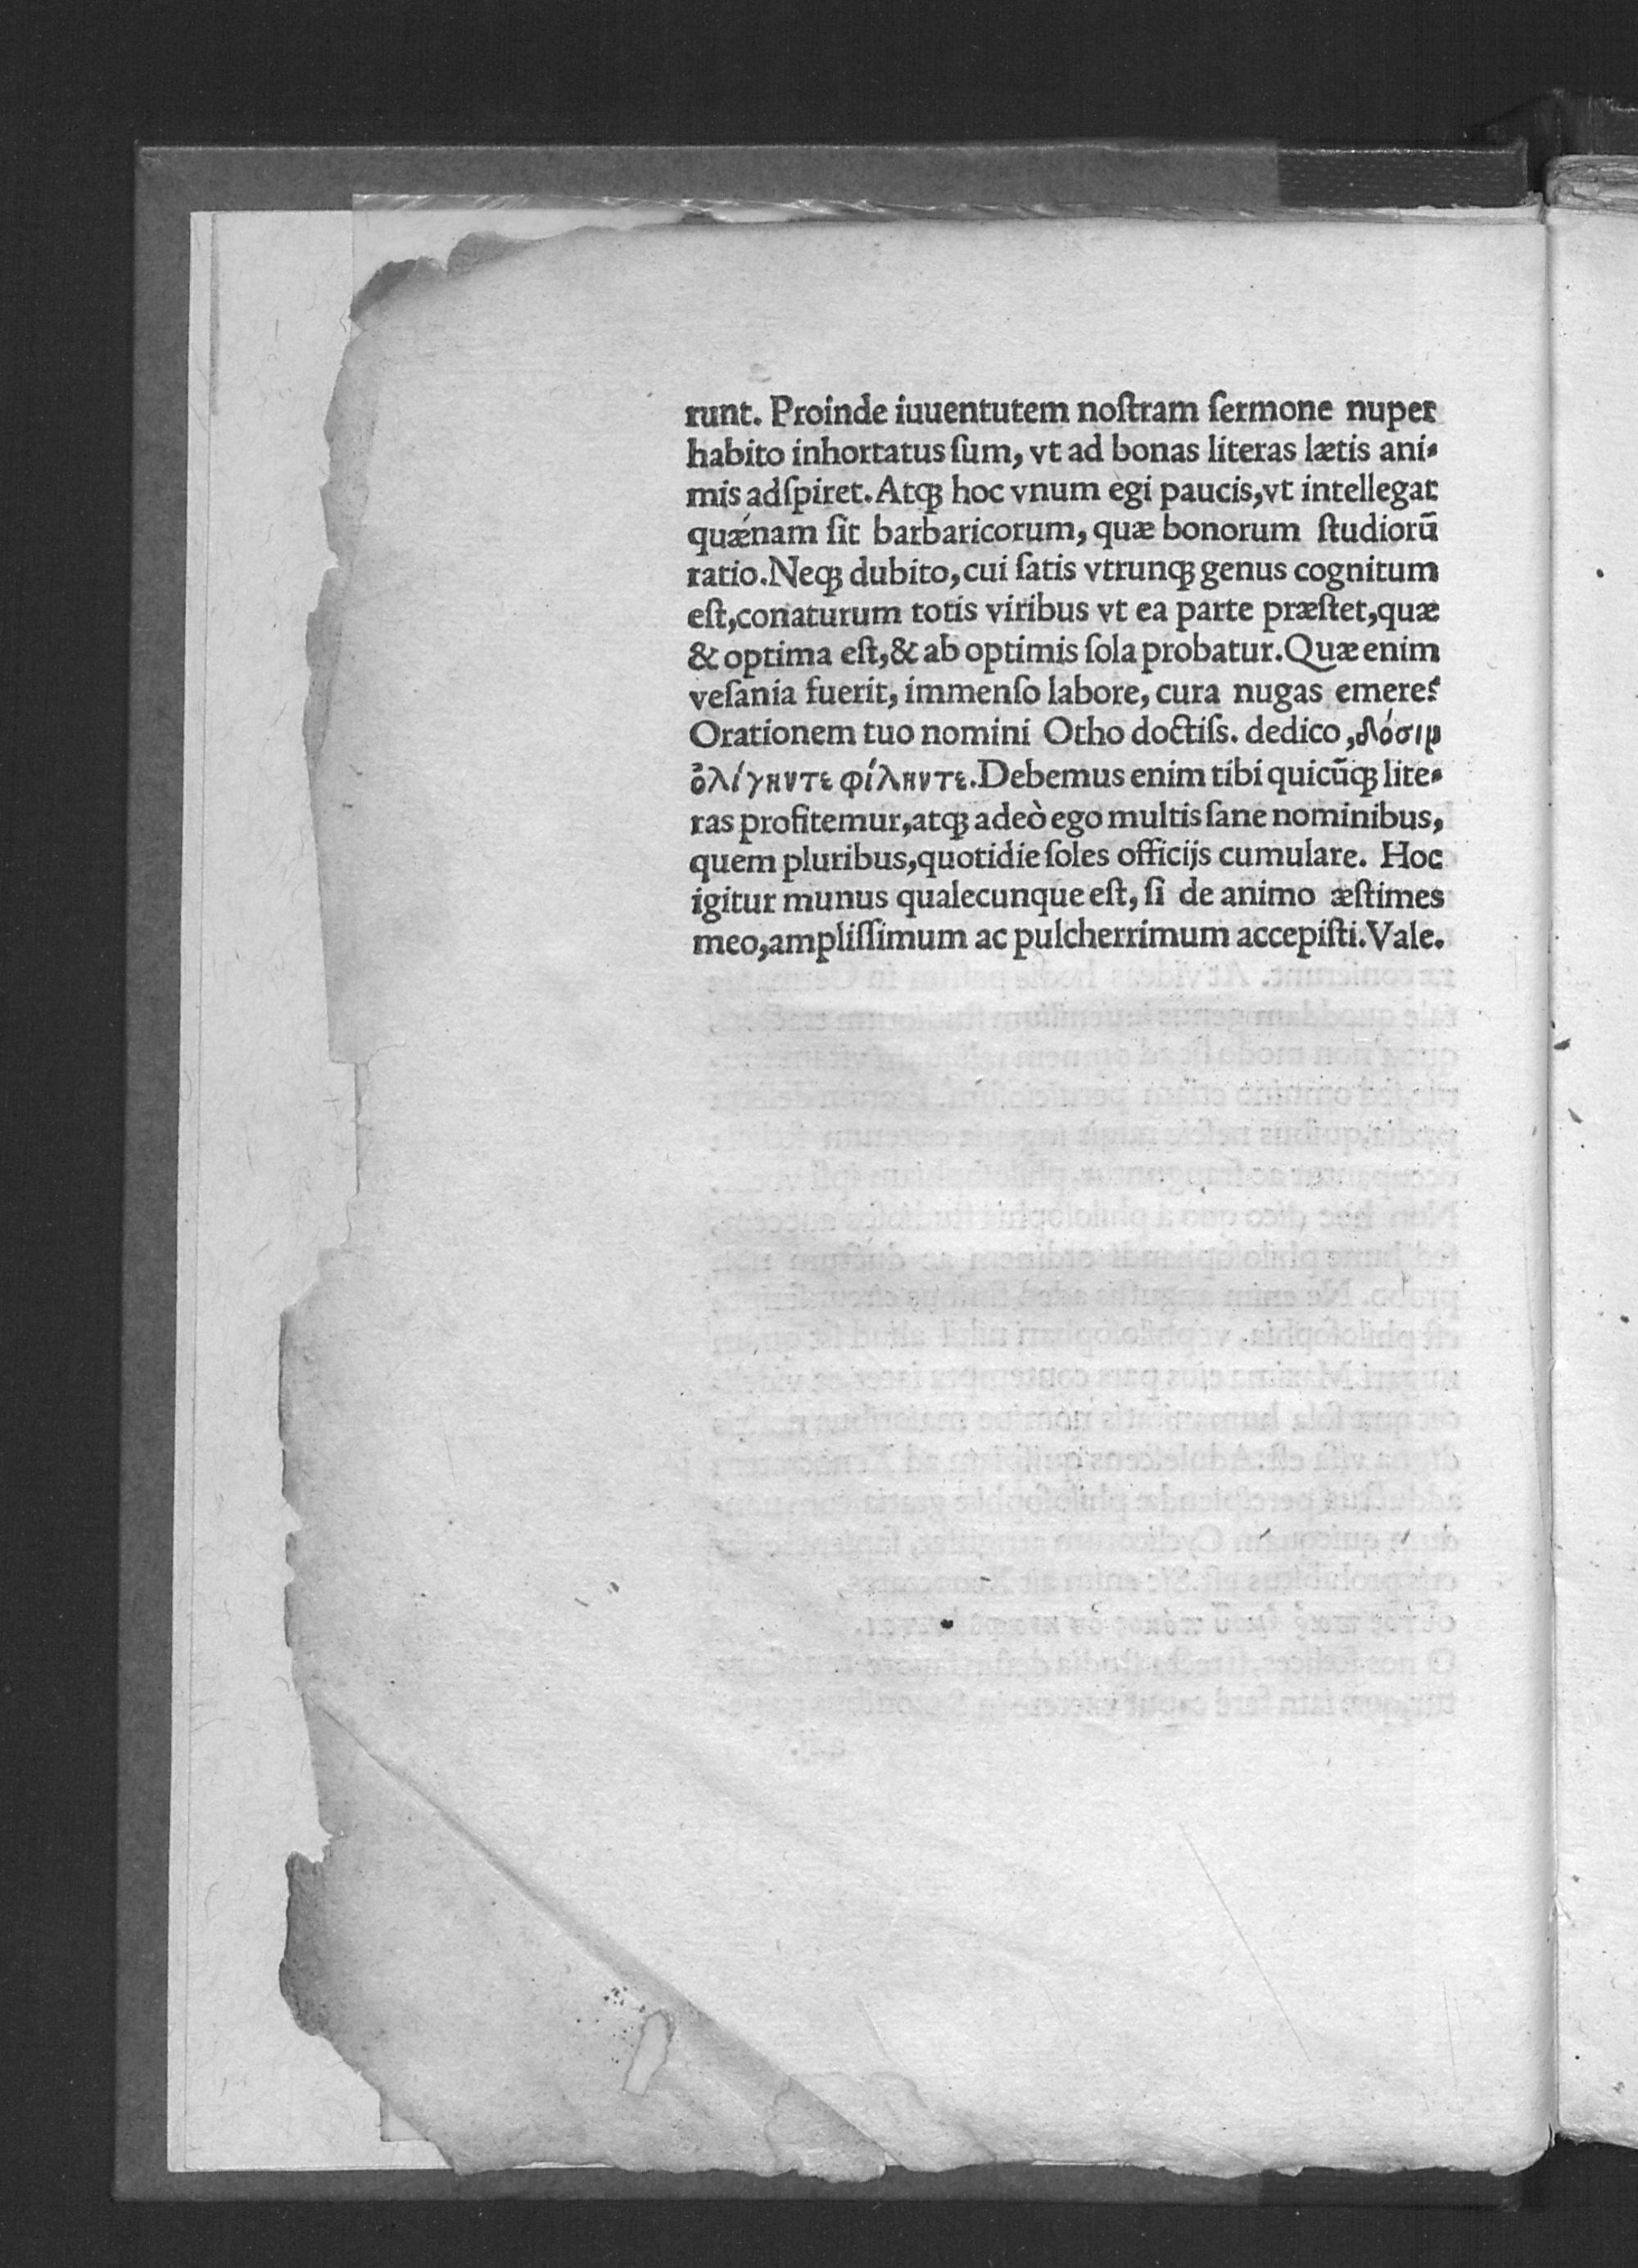 runt. Proinde iuuentutem noſtram ſermone nuper
habito inhortatus ſum, vt ad bonas literas lætis ani⸗
mis adſpiret. Atqꝫ hoc vnum egi paucis, vt intellegat
quǽnam ſit barbaricorum, quæ bonorum ſtudiorū
ratio. Neqꝫ dubito, cui ſatis vtrunqꝫ genus cognitum
eſt, conaturum totis viribus vt ea parte præſtet, quæ
& optima eſt, & ab optimis ſola probatur. Quæ enim
veſania fuerit, immenſo labore, cura nugas emere?
Orationem tuo nomini Otho doctiſs. dedico, δόσιν
ὀλίγηντε φίληντε. Debemus enim tibi quicūqꝫ lite⸗
ras profitemur, atqꝫ adeò ego multis ſane nominibus,
quem pluribus, quotidie ſoles officijs cumulare. Hoc
igitur munus qualecunque eſt, ſi de animo æſtimes
meo, ampliſſimum ac pulcherrimum accepiſti. Vale.